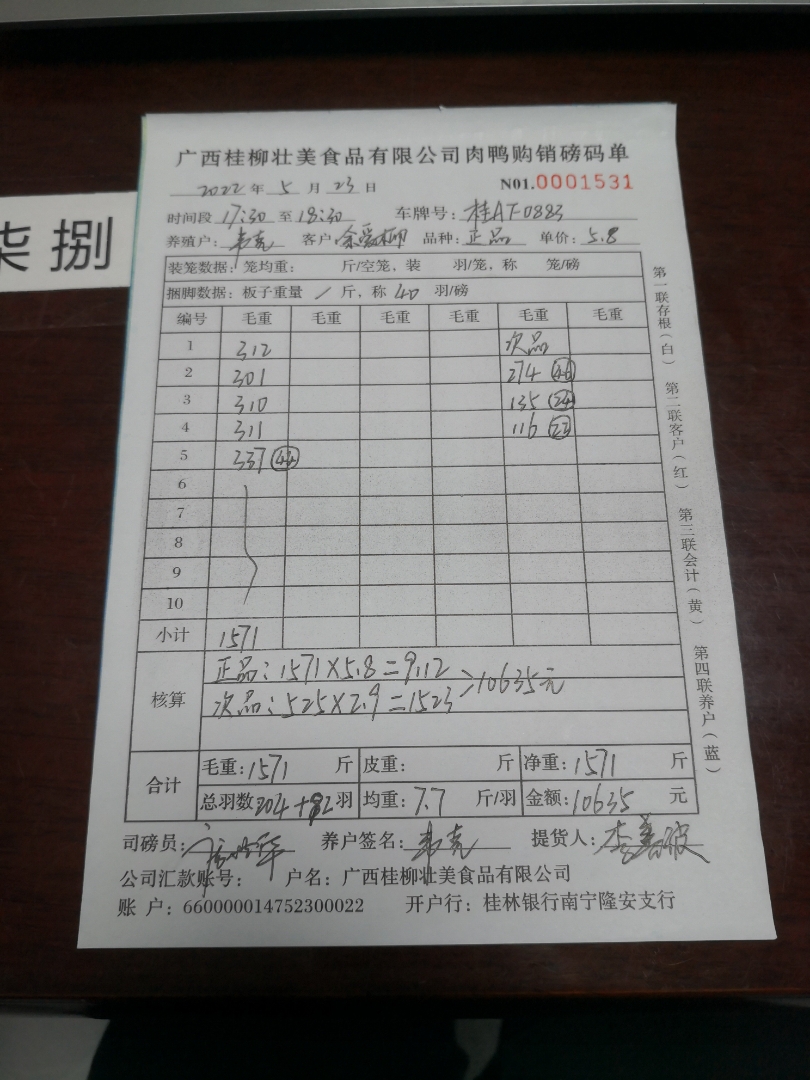 柒捌
广西桂柳壮美食品有限公司肉鸭购销磅码单
2022年5月23日 N01.0001531
时间段17:30至18:30 车牌号:桂AT-0883
养殖户:韦克 客户:余爱柳 品种:正品 单价:5.8
装笼数据: 笼均重: 斤/空笼,装 羽/笼,称 笼/磅
捆脚数据: 板子重量 / 斤,称40羽/磅
编号 毛重 毛重 毛重 毛重 毛重 毛重
1 312 次品
2 301 274 46
3 310 135 24
4 311 116 22
5 337 44
6
7
8
9
10
小计 1571
核算
正品:1571×5.8=9112
次品:525×2.9=1523 >10635元
合计
毛重:1571斤 皮重: 斤 净重:1571斤
总羽数204+92羽 均重:7.7斤/羽 金额:10635元
司磅员: 养户签名:韦克 提货人:李善波
公司汇款账号: 户名:广西桂柳壮美食品有限公司
账 户:660000014752300022 开户行:桂林银行南宁隆安支行
第一联存根(白) 第二联客户(红) 第三联会计(黄) 第四联养户(蓝)